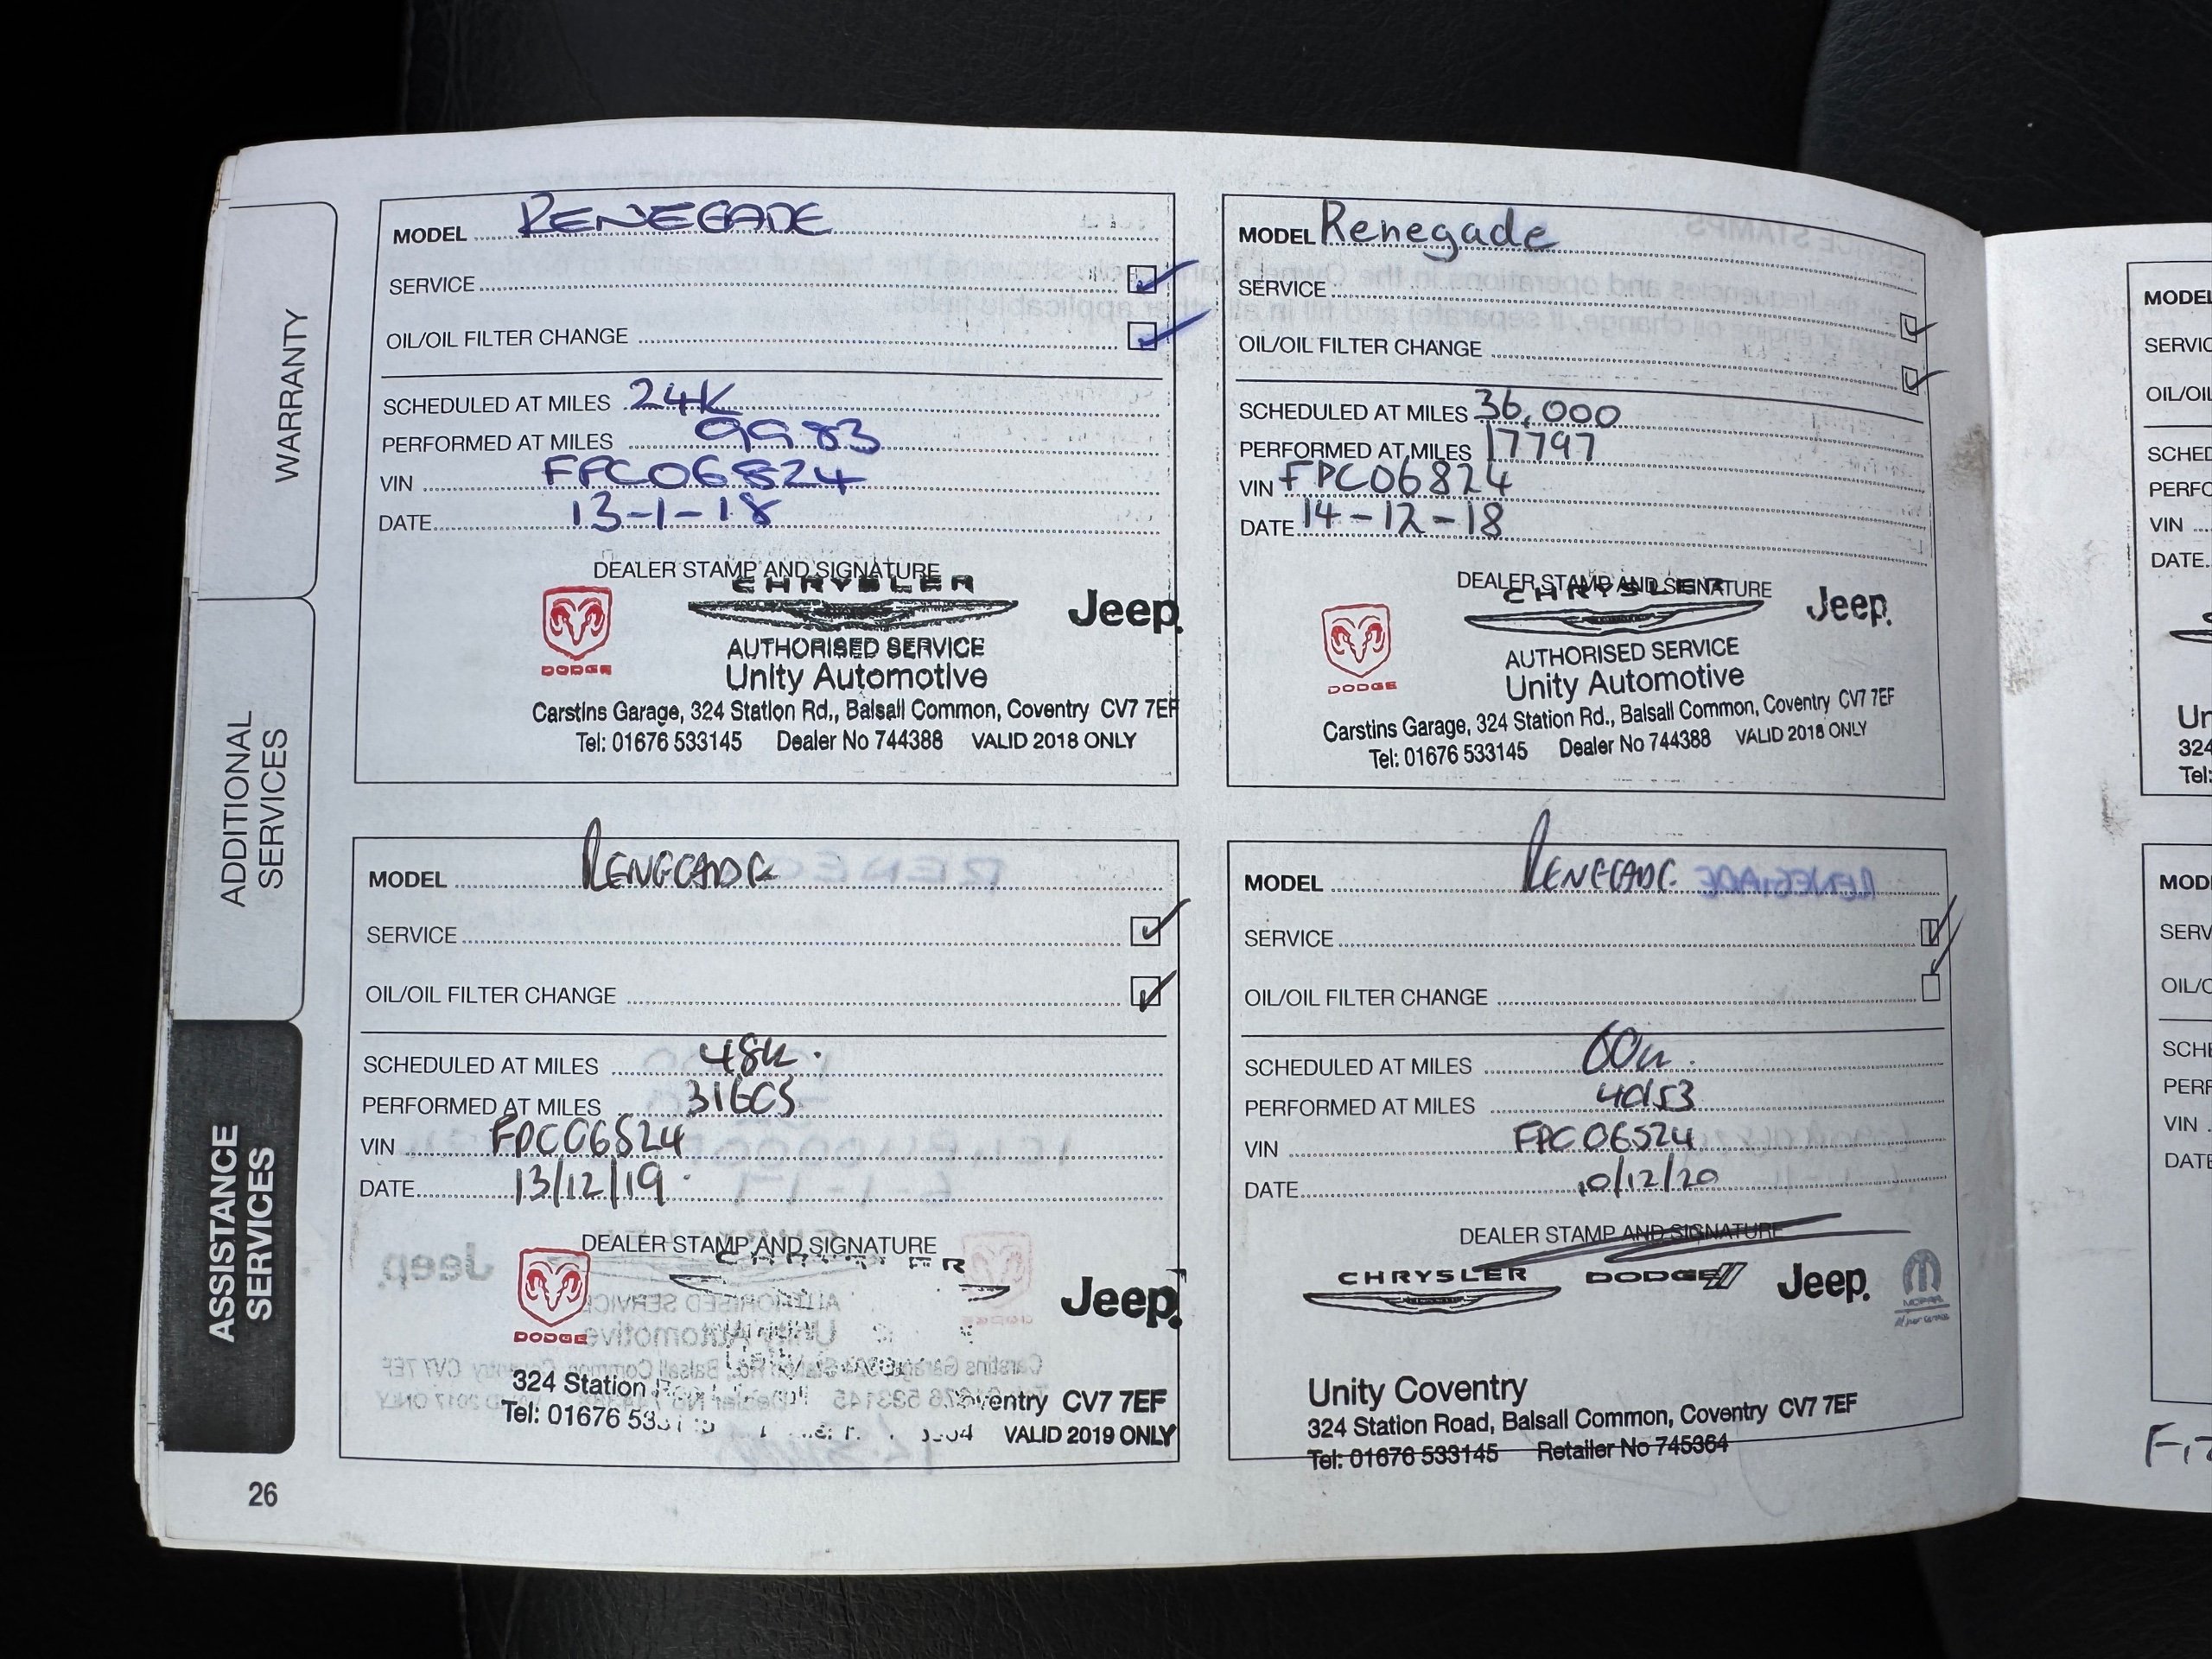 WARRANTY
ADDITIONAL
SERVICES
ASSISTANCE
SERVICES
26
MODEL RENEGADE
SERVICE
OIL/OIL FILTER CHANGE
SCHEDULED AT MILES 24K
PERFORMED AT MILES 9983
VIN FPC06824
DATE 13-1-18
DEALER STAMP AND SIGNATURE
CHRYSLER
DODGE
Jeep
AUTHORISED SERVICE
Unity Automotive
Carstins Garage, 324 Station Rd., Balsall Common, Coventry CV7 7EF
Tel: 01676 533145 Dealer No 744388 VALID 2018 ONLY
MODEL Renegade
SERVICE
OIL/OIL FILTER CHANGE
SCHEDULED AT MILES 36,000
PERFORMED AT MILES 17797
VIN FPC06824
DATE 14-12-18
DEALER STAMP AND SIGNATURE
CHRYSLER
DODGE
Jeep
AUTHORISED SERVICE
Unity Automotive
Carstins Garage, 324 Station Rd., Balsall Common, Coventry CV7 7EF
Tel: 01676 533145 Dealer No 744388 VALID 2018 ONLY
MODEL RENEGADE
SERVICE
OIL/OIL FILTER CHANGE
SCHEDULED AT MILES 48K
PERFORMED AT MILES 31605
VIN FPC06824
DATE 13/12/19
DEALER STAMP AND SIGNATURE
DODGE
Jeep
324 Station
CV7 7EF
Tel: 01676
VALID 2019 ONLY
MODEL RENEGADE
SERVICE
OIL/OIL FILTER CHANGE
SCHEDULED AT MILES 60K
PERFORMED AT MILES 40153
VIN FPC06824
DATE 10/12/20
DEALER STAMP AND SIGNATURE
CHRYSLER DODGE Jeep
MOPAR
Unity Coventry
324 Station Road, Balsall Common, Coventry CV7 7EF
Tel: 01676 533145 Retailer No 745364
MODEL
VIN
DATE
324
Tel:
VIN